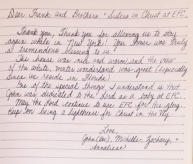 Dear Frank and Brothers & Sisters in Christ at EFC,
Thank you, Thank you for allowing us to stay
again while in New York! Your house was truly
a tremendous blessing to us!
The house was and warm and the view
of the white, winter wonderland was great (especially
since we reside in Florida).
One of the special things I understand is that
was dedicated to the Lord as a body at EFC!
May the Lord continue to use EFC for His glory.
Keep on being a lighthouse for Christ in His Name!
Love,
Michelle, Zachary &
Annaliese!